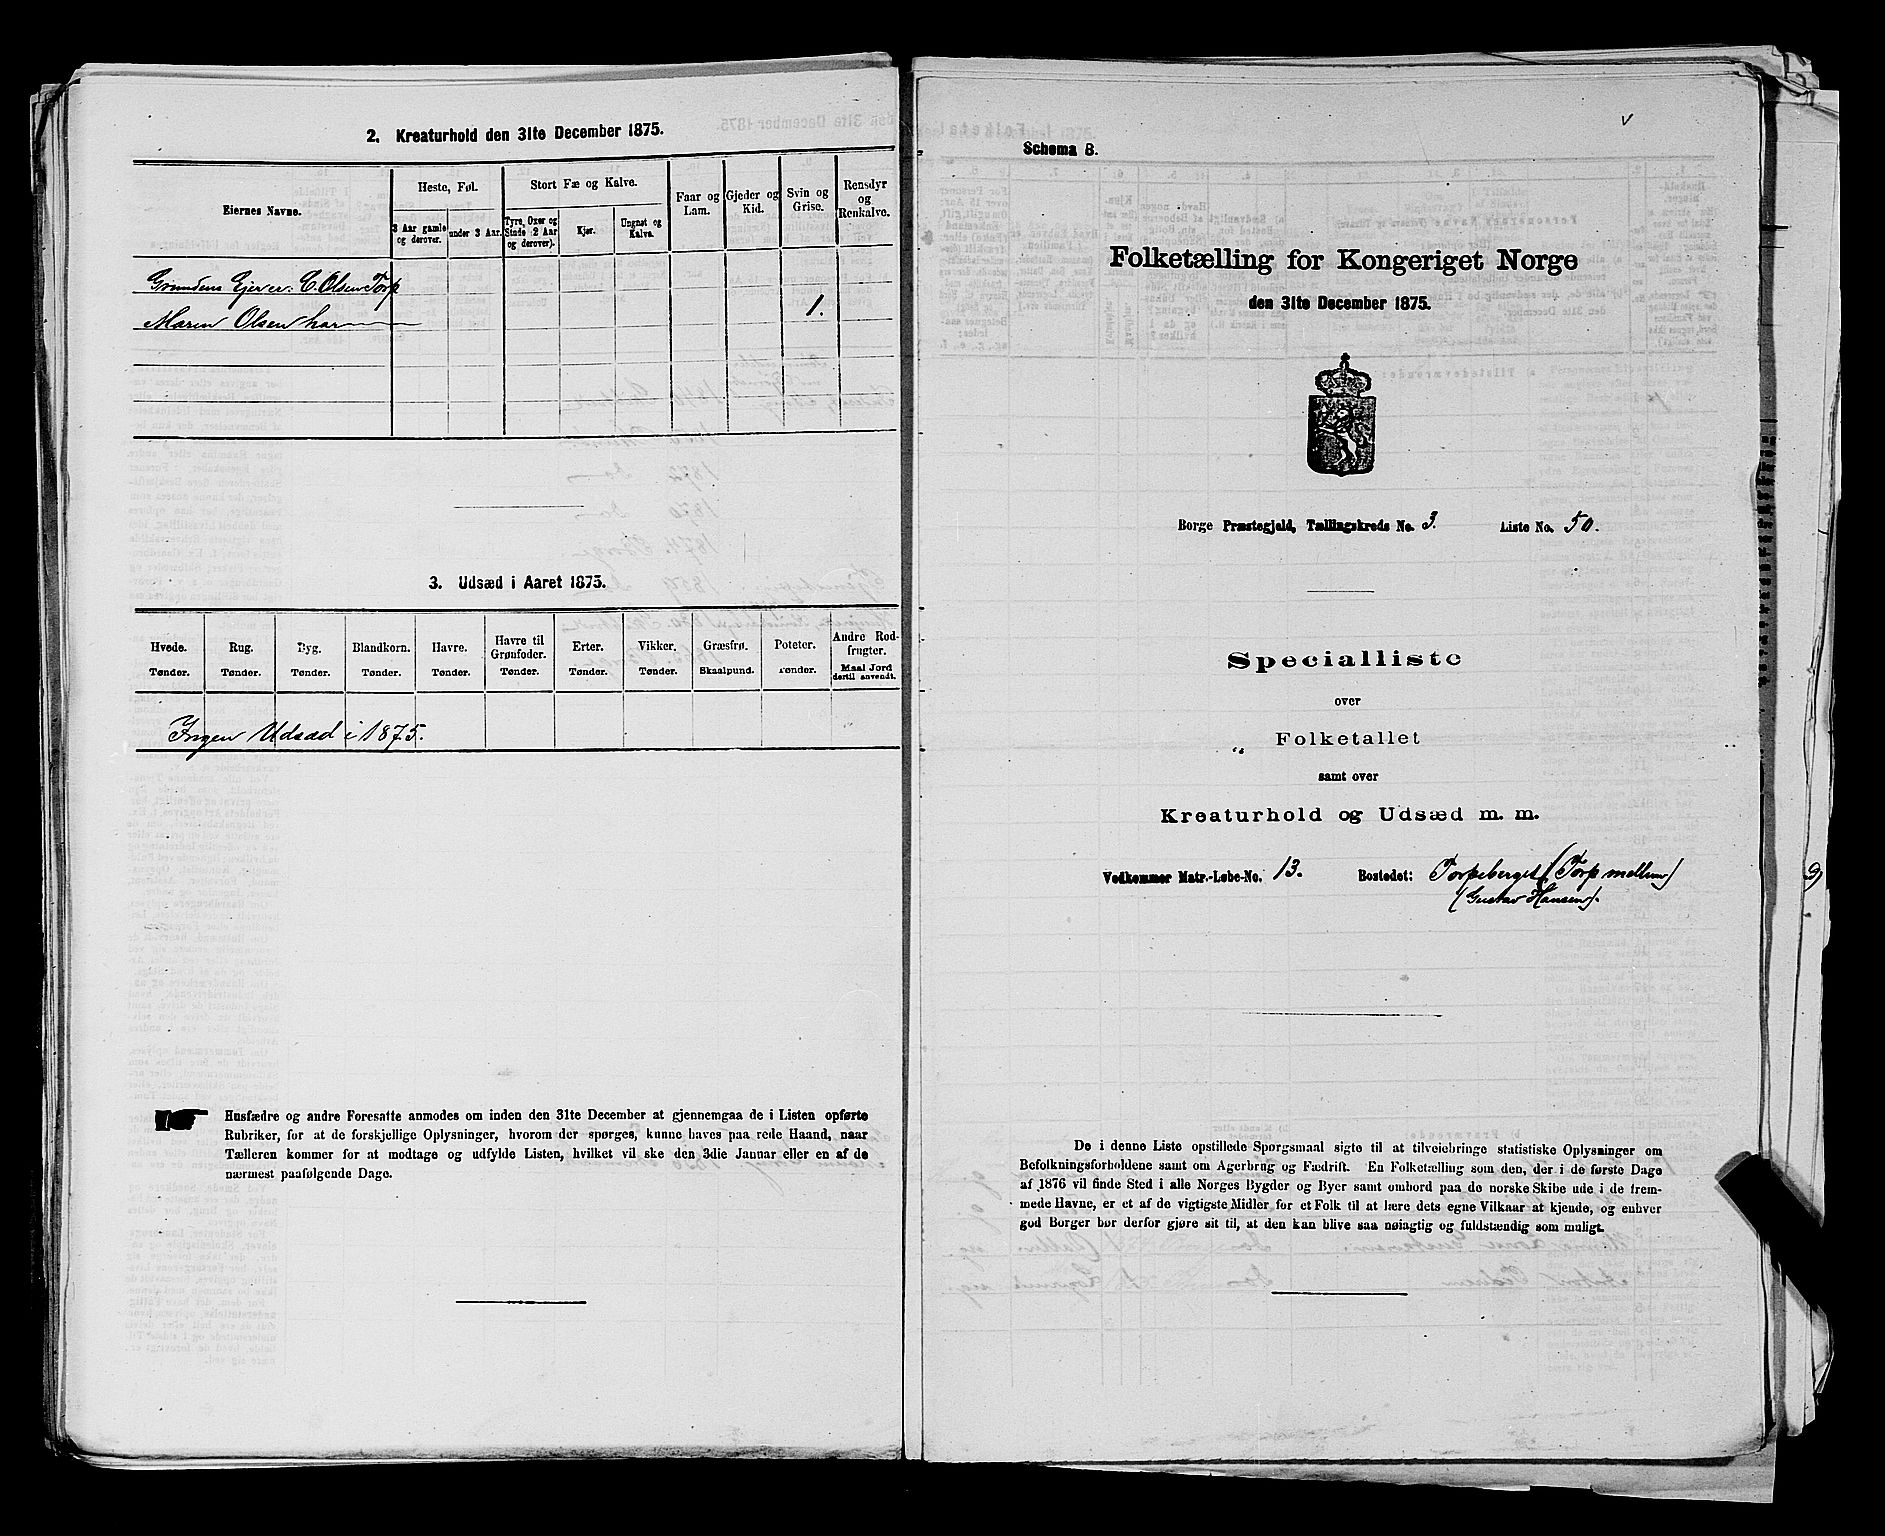 2. Kreaturhold den 31te December 1875.
Eiernes Navne.
Heste, Føl.
3 Aar gamle og derover.
under 3 Aar.
Stort Fæ og Kalve.
Tyre, Oxer og Stude (2 Aar og derover).
Kjør.
Ungnøt og Kalve.
Faar og Lam.
Gjeder og Kid.
Svin og Grise.
Rensdyr og Renkalve.
Grundens Ejer er: C. Olsen Torp
Maren Olsen har 1.
3. Udsæd i Aaret 1875.
Hvede. Rug. Byg. Blandkorn. Havre. Havre til Grønfoder. Erter. Vikker. Græsfrø. Poteter. Andre Rodfrugter.
Tønder. Tønder. Tønder. Tønder. Tønder. Tønder. Tønder. Tønder. Skaalpund. Tønder. Maal Jord dertil anvendt.
Ingen Udsæd i 1875.
Husfædre og andre Foresatte anmodes om inden den 31te December at gjennemgaa de i Listen opførte
Rubriker, for at de forskjellige Oplysninger, hvorom der spørges, kunne haves paa rede Haand, naar
Tælleren kommer for at modtage og udfylde Listen, hvilket vil ske den 3die Januar eller en af de
nærmest paafølgende Dage.
Schema B.
Folketælling for Kongeriget Norge
den 31te December 1875.
Borge Præstegjeld, Tællingskreds No. 3. Liste No. 50.
Specialliste
over
Folketallet
samt over
Kreaturhold og Udsæd m. m.
Vedkommer Matr.-Løbe-No. 13. Bostedet: Torpeberget (Torp mellem)
(Gustav Hansen).
De i denne Liste opstillede Spørgsmaal sigte til at tilveiebringe statistiske Oplysninger om
Befolkningsforholdene samt om Agerbrug og Fædrift. En Folketælling som den, der i de første Dage
af 1876 vil finde Sted i alle Norges Bygder og Byer samt ombord paa de norske Skibe ude i de frem-
mede Havne, er et af de vigtigste Midler for et Folk til at lære dets egne Vilkaar at kjende, og enhver
god Borger bør derfor gjøre sit til, at den kan blive saa nøiagtig og fuldstændig som muligt.